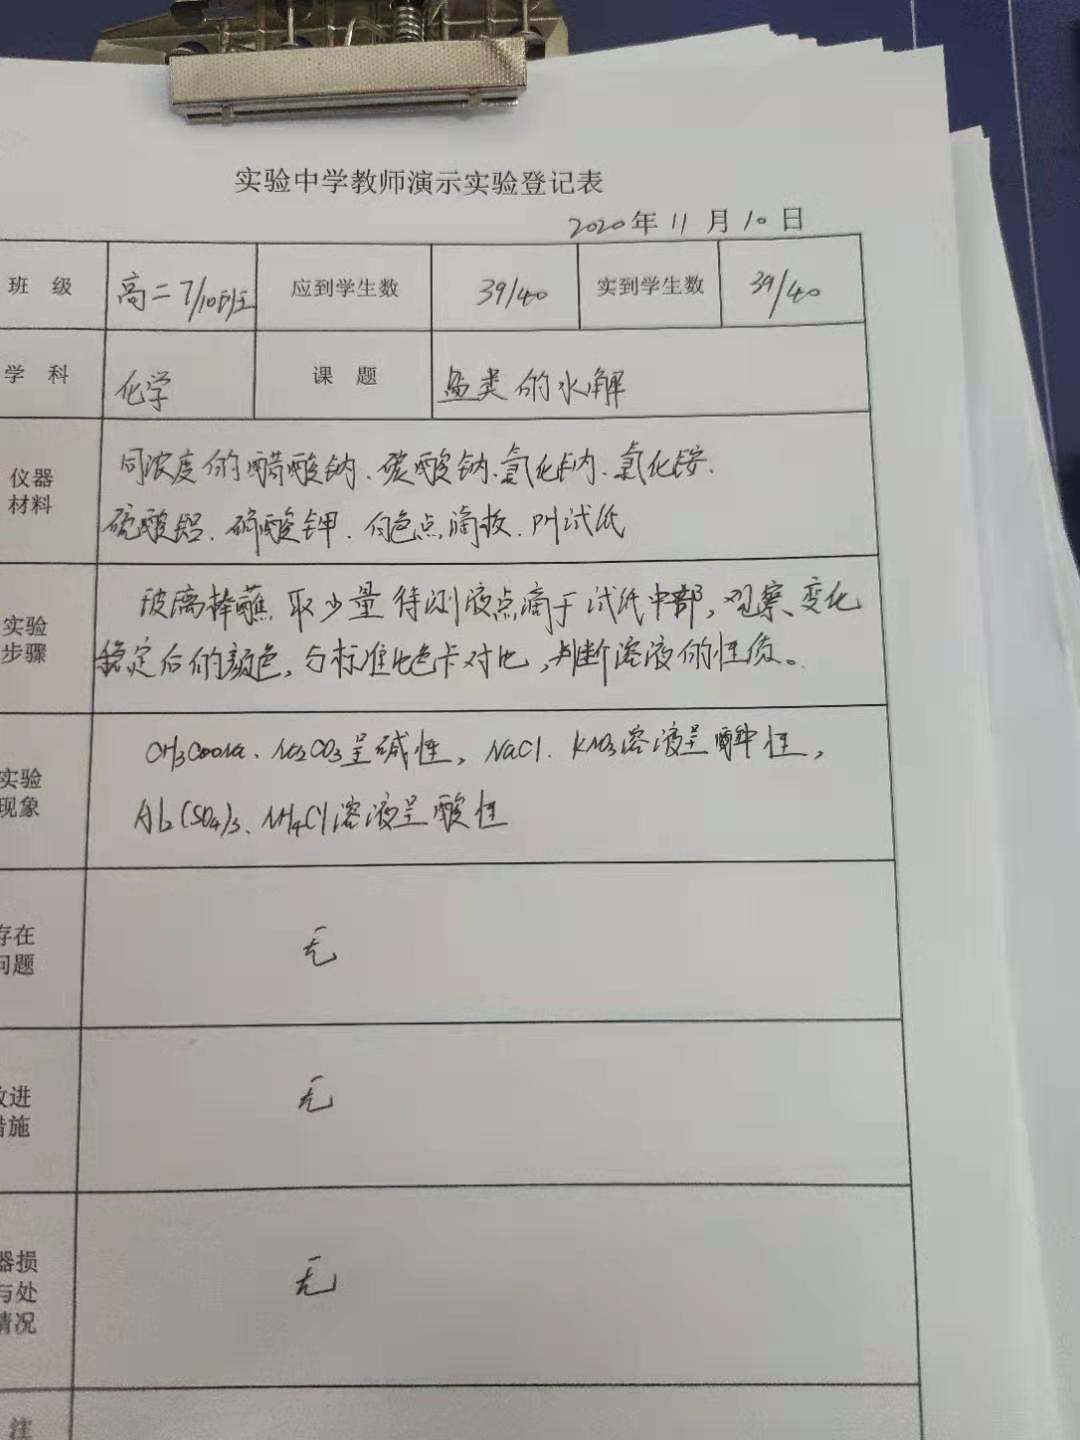 实验中学教师演示实验登记表
2020年11月10日
班 级 高二7/10班 应到学生数 39/40 实到学生数 39/40
学 科 化学 课 题 盐类的水解
仪器
材料
同浓度的醋酸钠、碳酸钠、氯化钠、氯化铵、
硫酸铝、硝酸钾、白色点滴板、PH试纸
实验
步骤
玻璃棒蘸取少量待测液点滴于试纸中部,观察、变化
稳定后的颜色,与标准比色卡对比,判断溶液的性质。
实验
现象
CH3COONa、Na2CO3呈碱性,NaCl、KNO3溶液呈 性,
Al2(SO4)3、NH4Cl溶液呈酸性
存在
问题
无
改进
措施
无
器损
与处
情况
无
注